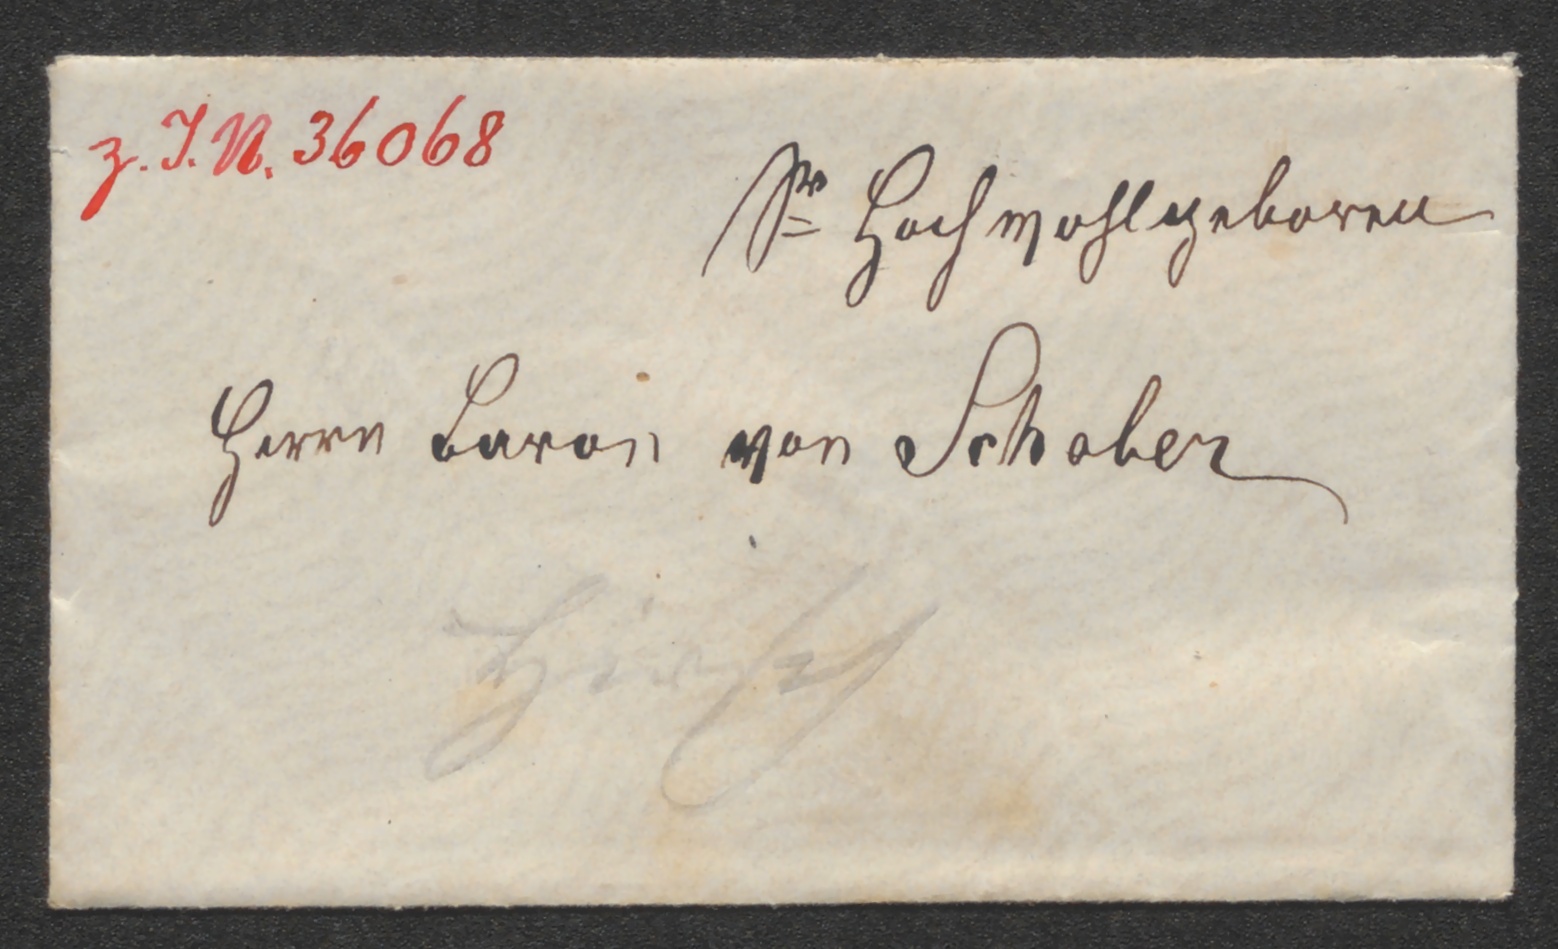 z. I. N. 36068
Sr Hochwohlgeboren
Herrn Baron von Schober
Hirsch